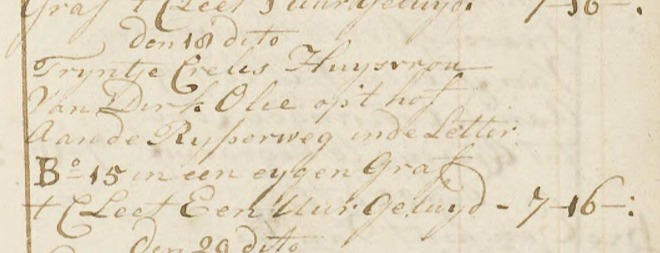 Graf + Cleet 1 uur geluyd. 7-16-:
den 18 dito
Tryntje Creus Huysvrou
Van Dirk Olie op't hof
Aan de Ryperweg inde Letter
Bº 15 in een eygen Graf
+ Cleet Een Uur Geluyd - 7-16-:
den 29 dito